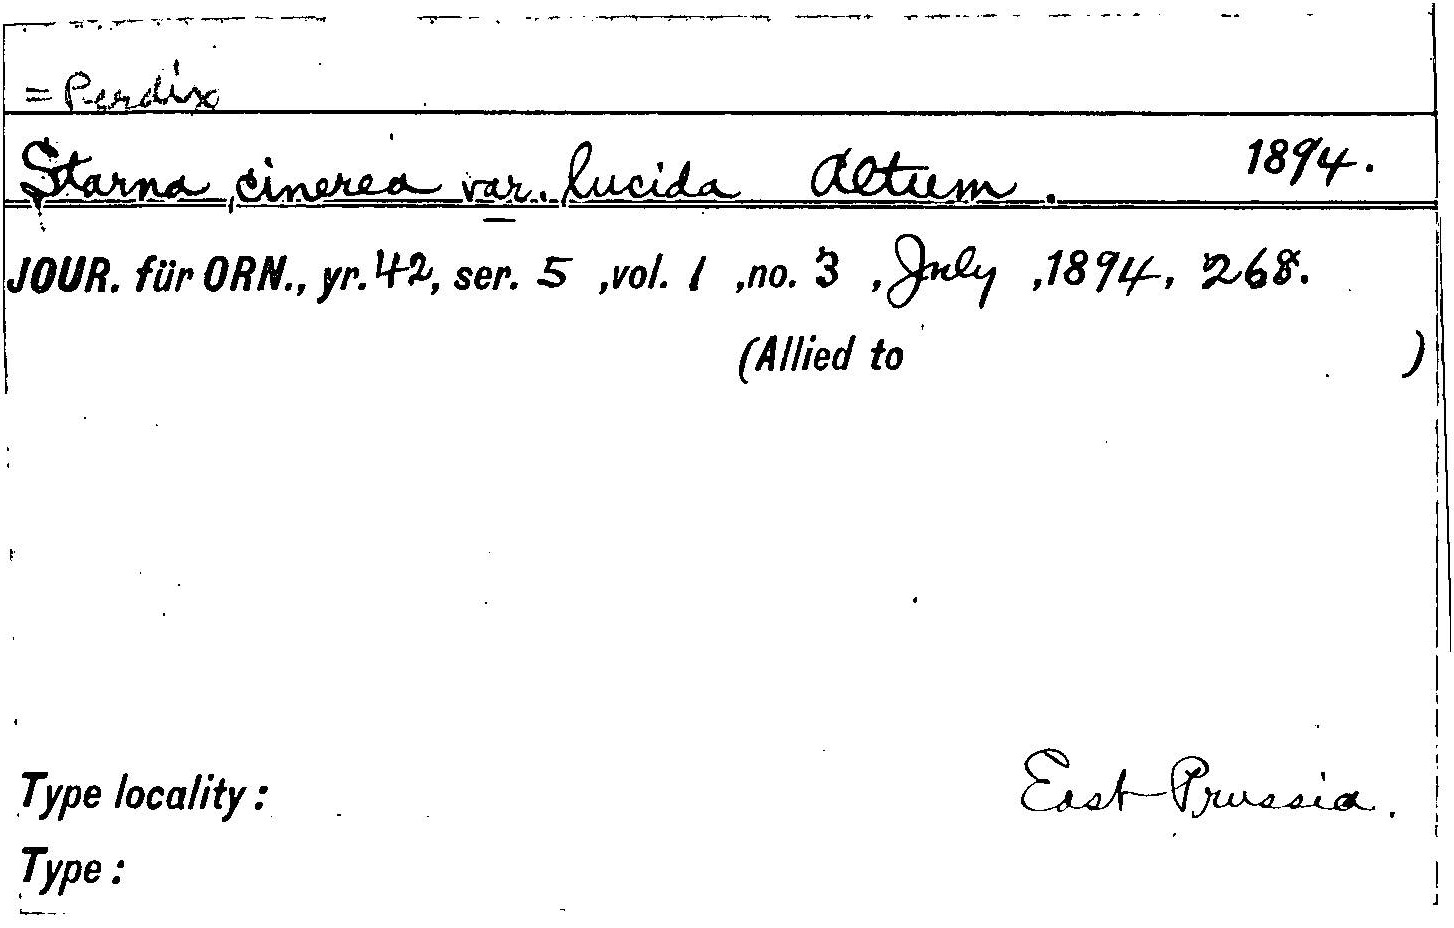 = Perdix
Starna cinerea var. lucida Altum. 1894.
JOUR. für ORN., yr. 42, ser. 5 ,vol. 1 ,no. 3 , July ,1894, 268.
(Allied to )
Type locality: East Prussia.
Type: